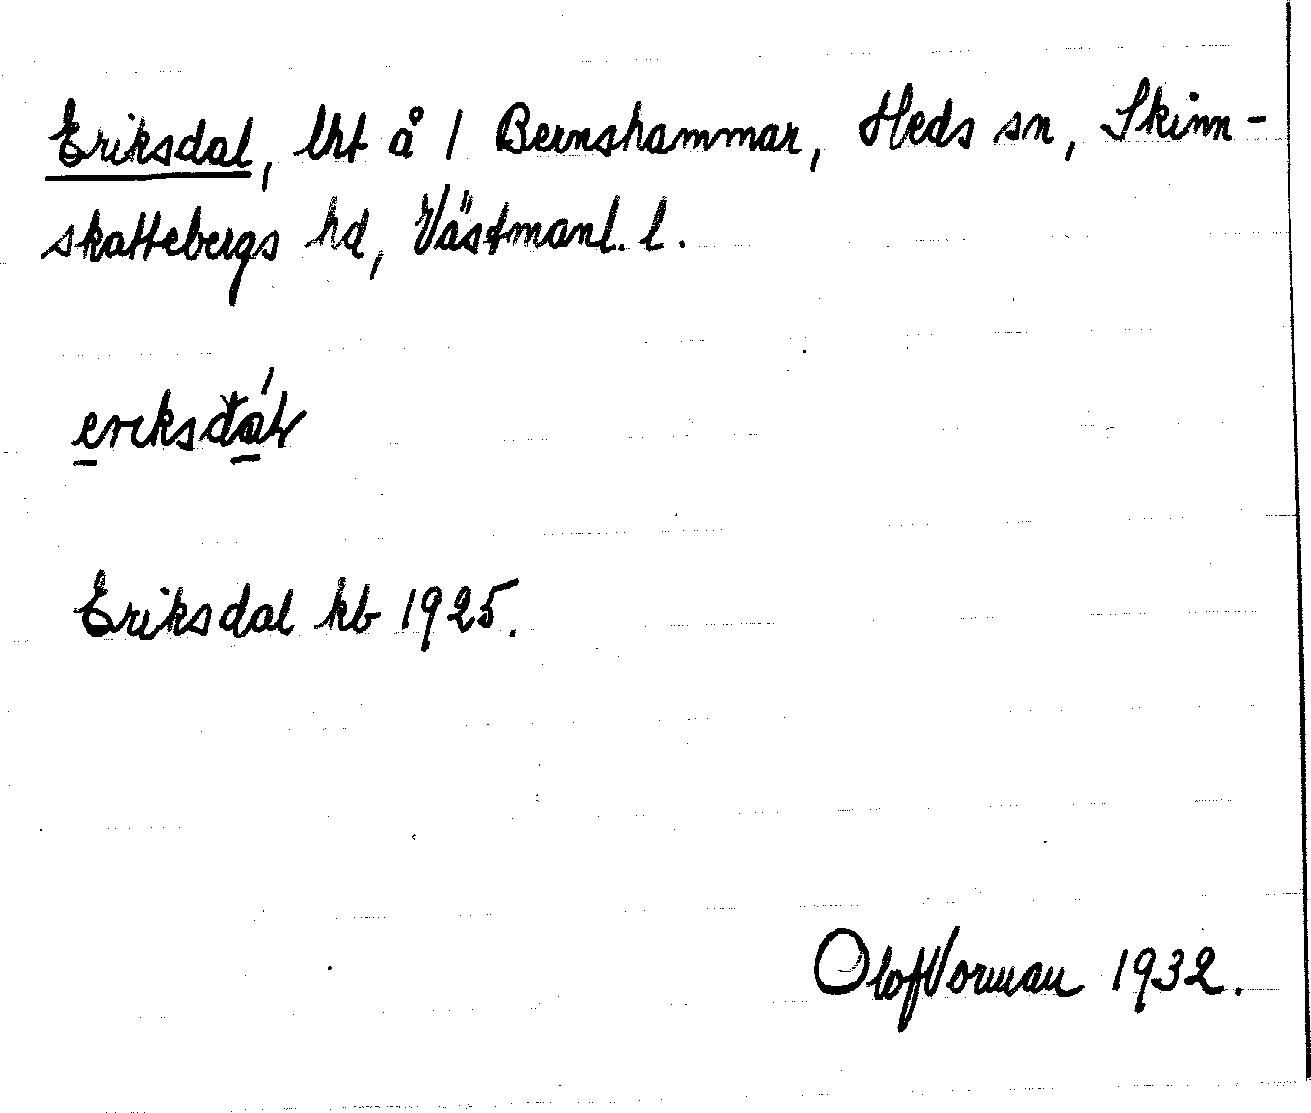 Eriksdal, lht å 1 Bernshammar, Heds sn, Skinn-
skattebergs hd, Västmanl. l.
Eriksdal kb 1925.
Olof Vorman 1932.